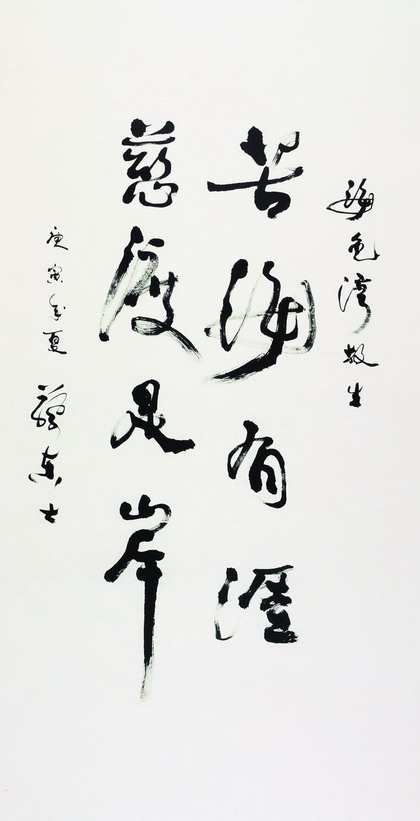 海色湾放生
苦海有涯
慈渡是岸
庚寅年夏
东士